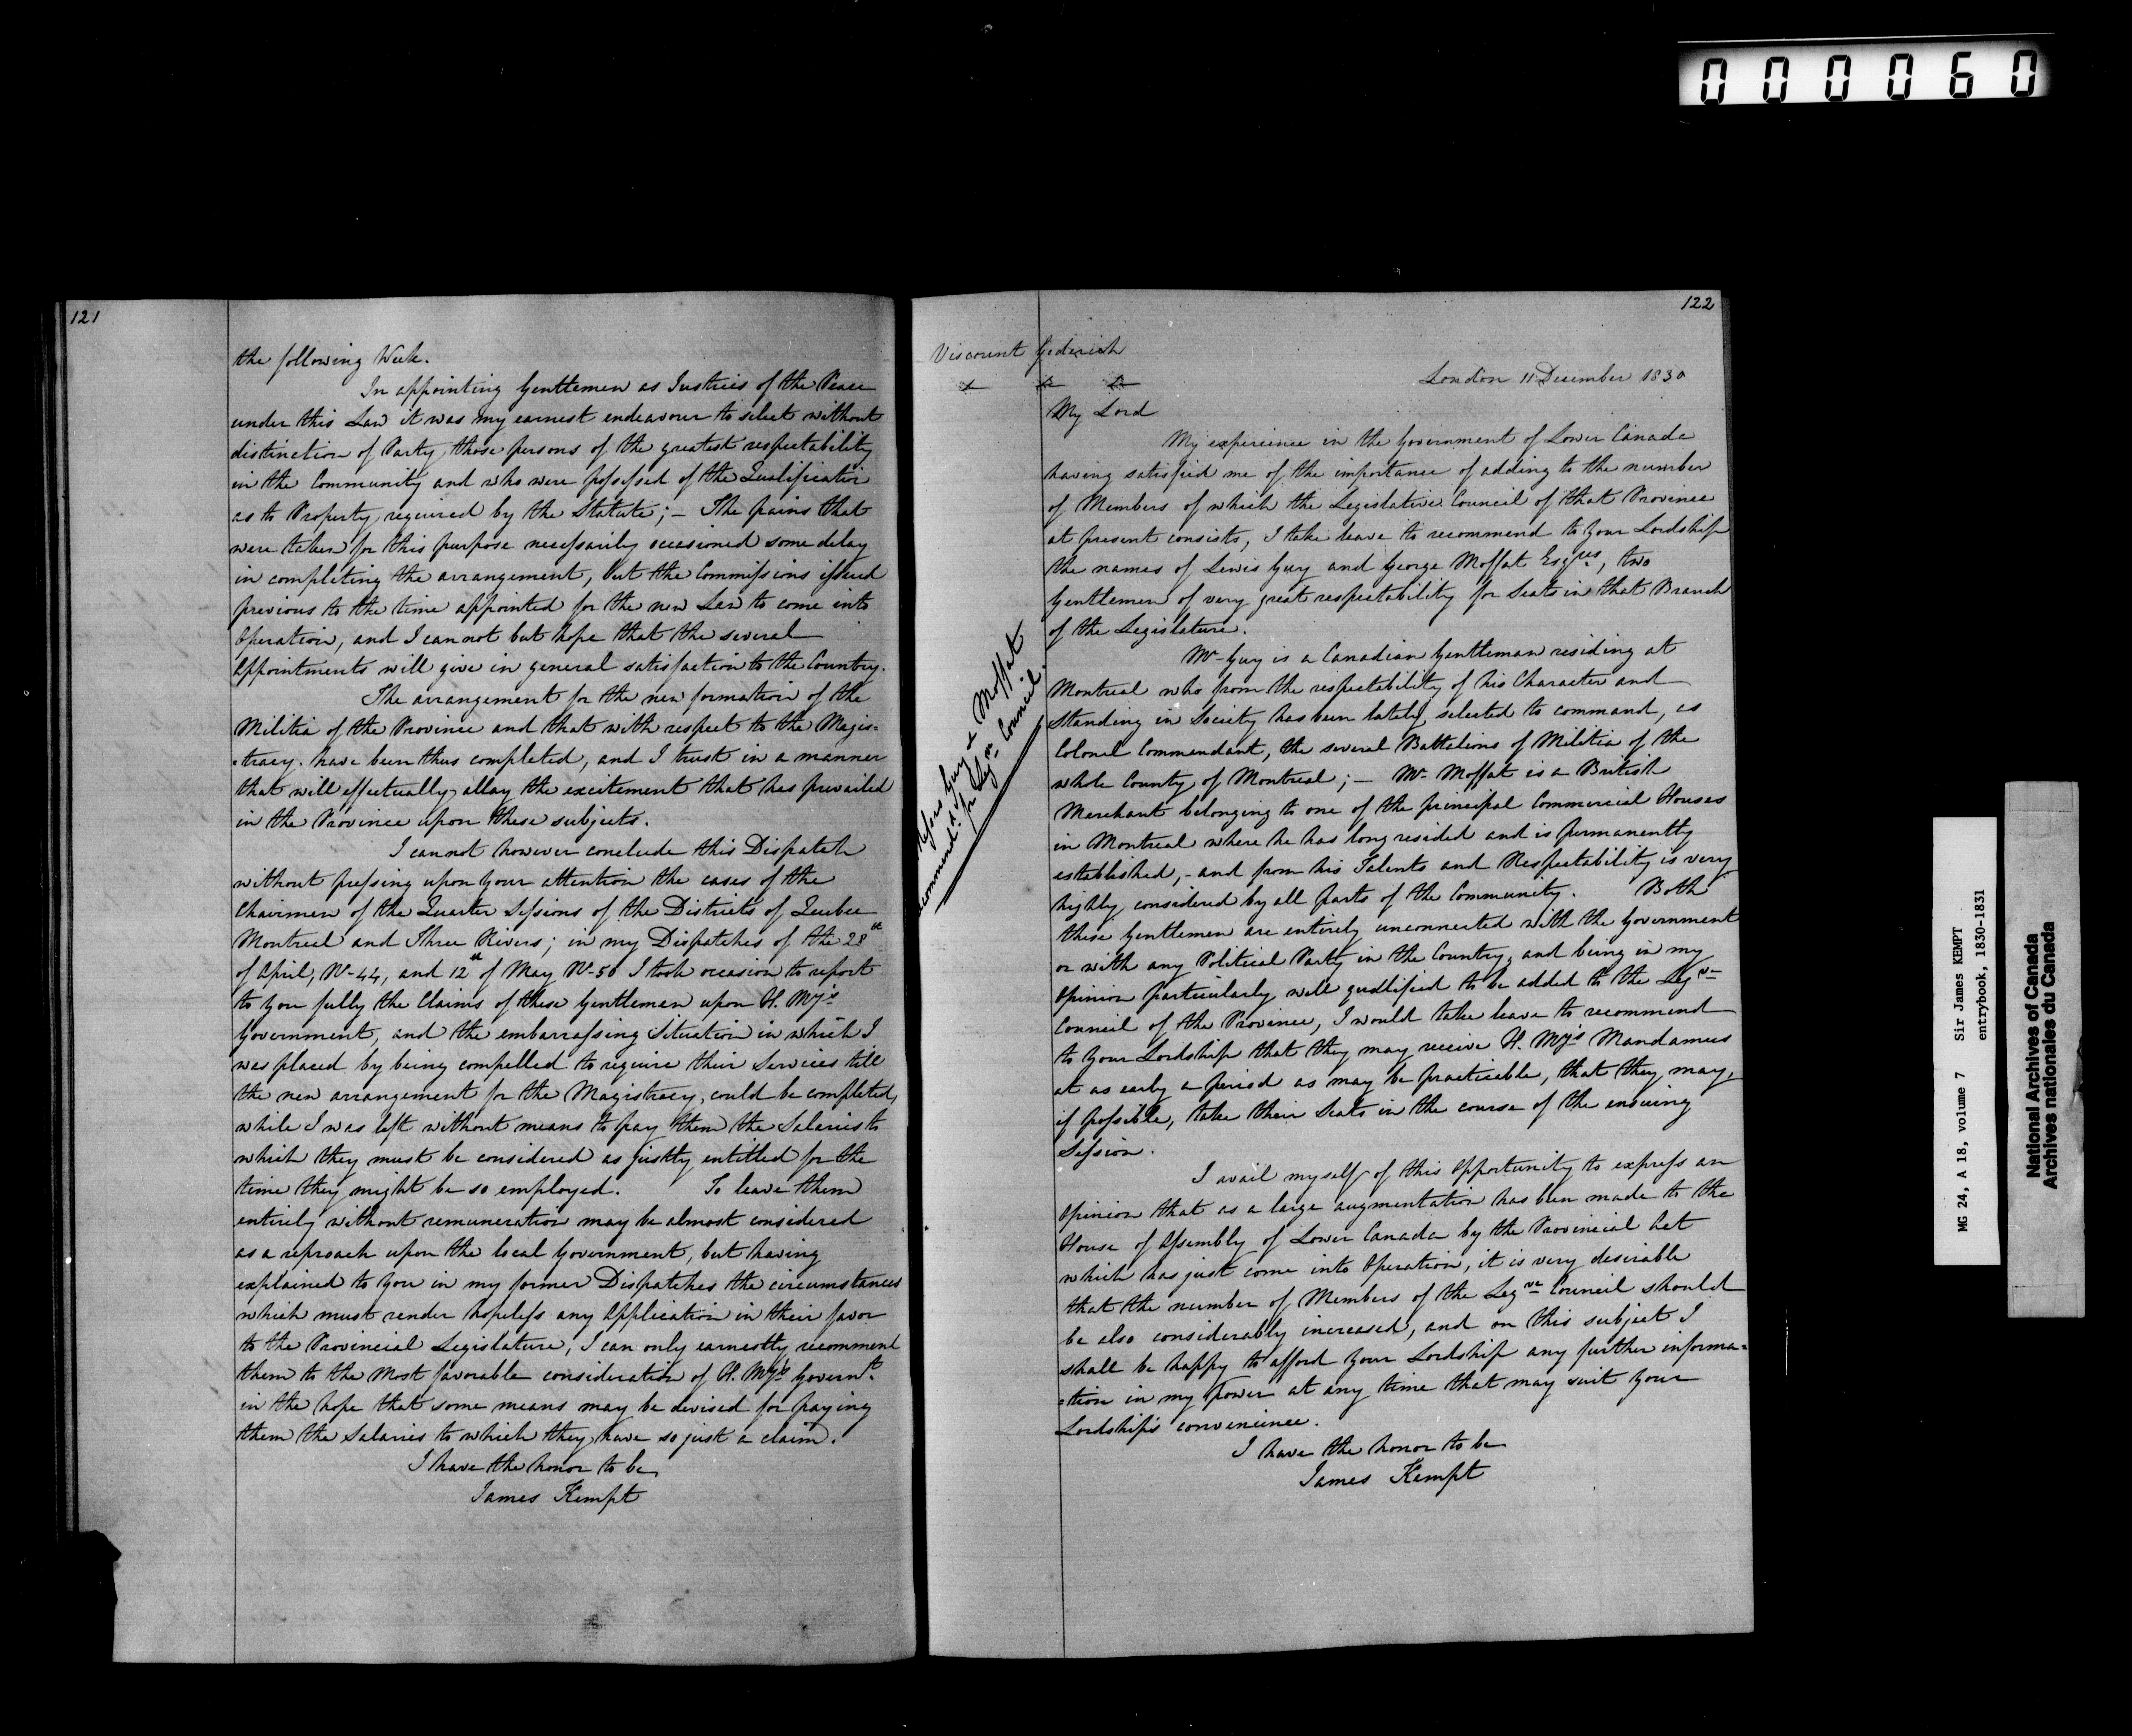 000060
121
the following Week.
In appointing Gentlemen as Justices of the Peace
under this Law it was my earnest endeavour to select without
distinction of Party those persons of the greatest respectability
in the Community and who were possessed of the Qualification
as to Property required by the Statute; – The pains that
were taken for this purpose necessarily occasioned some delay
in completing the arrangement, but the Commissions issued
previous to the time appointed for the new Law to come into
Operation, and I cannot but hope that the several
appointments will give in general satisfaction to the Country.
The arrangement for the new formation of the
Militia of the Province and that with respect to the Magis=
=tracy have been thus completed, and I trust in a manner
that will effectually allay the excitement that has prevailed
in the Province upon these subjects.
I cannot however conclude this Dispatch
without pressing upon your attention the cases of the
Chairmen of the Quarter Sessions of the Districts of Quebec
Montreal and Three Rivers; in my Dispatches of the 28th
of April, No 44, and 12th of May No 50 I took occasion to report
to you fully the Claims of these Gentlemen upon H. My's
Government, and the embarrassing Situation in which I
was placed by being compelled to require their Services till
the new arrangement for the Magistracy could be completed,
while I was left without means to pay them the Salaries to
which they must be considered as justly entitled for the
time they might be so employed. To leave them
entirely without remuneration may be almost considered
as a reproach upon the local Government, but having
explained to you in my former Dispatches the circumstances
which must render hopeless any Application in their favor
to the Provincial Legislature, I can only earnestly recommend
them to the Most favorable consideration of H. My's Governt.
in the hope that some means may be devised for paying
them the Salaries to which they have so just a claim.
I have the honor to be
James Kempt
122
Viscount Goderich
London 11 December 1830
My Lord
My experience in the Government of Lower Canada
having satisfied me of the importance of adding to the number
of Members of which the Legislative Council of that Province
at present consists, I take leave to recommend to Your Lordship
the names of Lewis Guy and George Moffat Esqres, two
Gentlemen of very great respectability for Seats in that Branch
of the Legislature.
Guy & Moffat
recommend.d for Legve Council.
Mr Guy is a Canadian Gentleman residing at
Montreal who from the respectability of his Character and
Standing in Society has been lately selected to command, as
Colonel Commendant, the several Battalions of Militia of the
whole County of Montreal; – Mr Moffat is a British
Merchant belonging to one of the principal Commercial Houses
in Montreal where he has long resided and is permanently
established, – and from his Talents and Respectability is very
highly considered by all parts of the Community. Both
these Gentlemen are entirely unconnected with the Government
or with any Political Party in the Country, and being in my
Opinion particularly well qualified to be added to the Legve
Council of the Province, I would take leave to recommend
to Your Lordship that they may receive H. My's Mandamus
at as early a period as may be practicable, that they may,
if possible, take their Seats in the course of the ensuing
Session.
I avail myself of this Opportunity to express an
Opinion that as a large augmentation has been made to the
House of Assembly of Lower Canada by the Provincial Act
which has just come into Operation, it is very desirable
that the number of Members of the Legve Council should
be also considerably increased, and on this subject I
shall be happy to afford Your Lordship any further informa=
=tion in my Power at any time that may suit Your
Lordship's convenience.
I have the honor to be
James Kempt
MG 24, A 18, volume 7 Sir James KEMPT
entrybook, 1830-1831
National Archives of Canada
Archives nationales du Canada